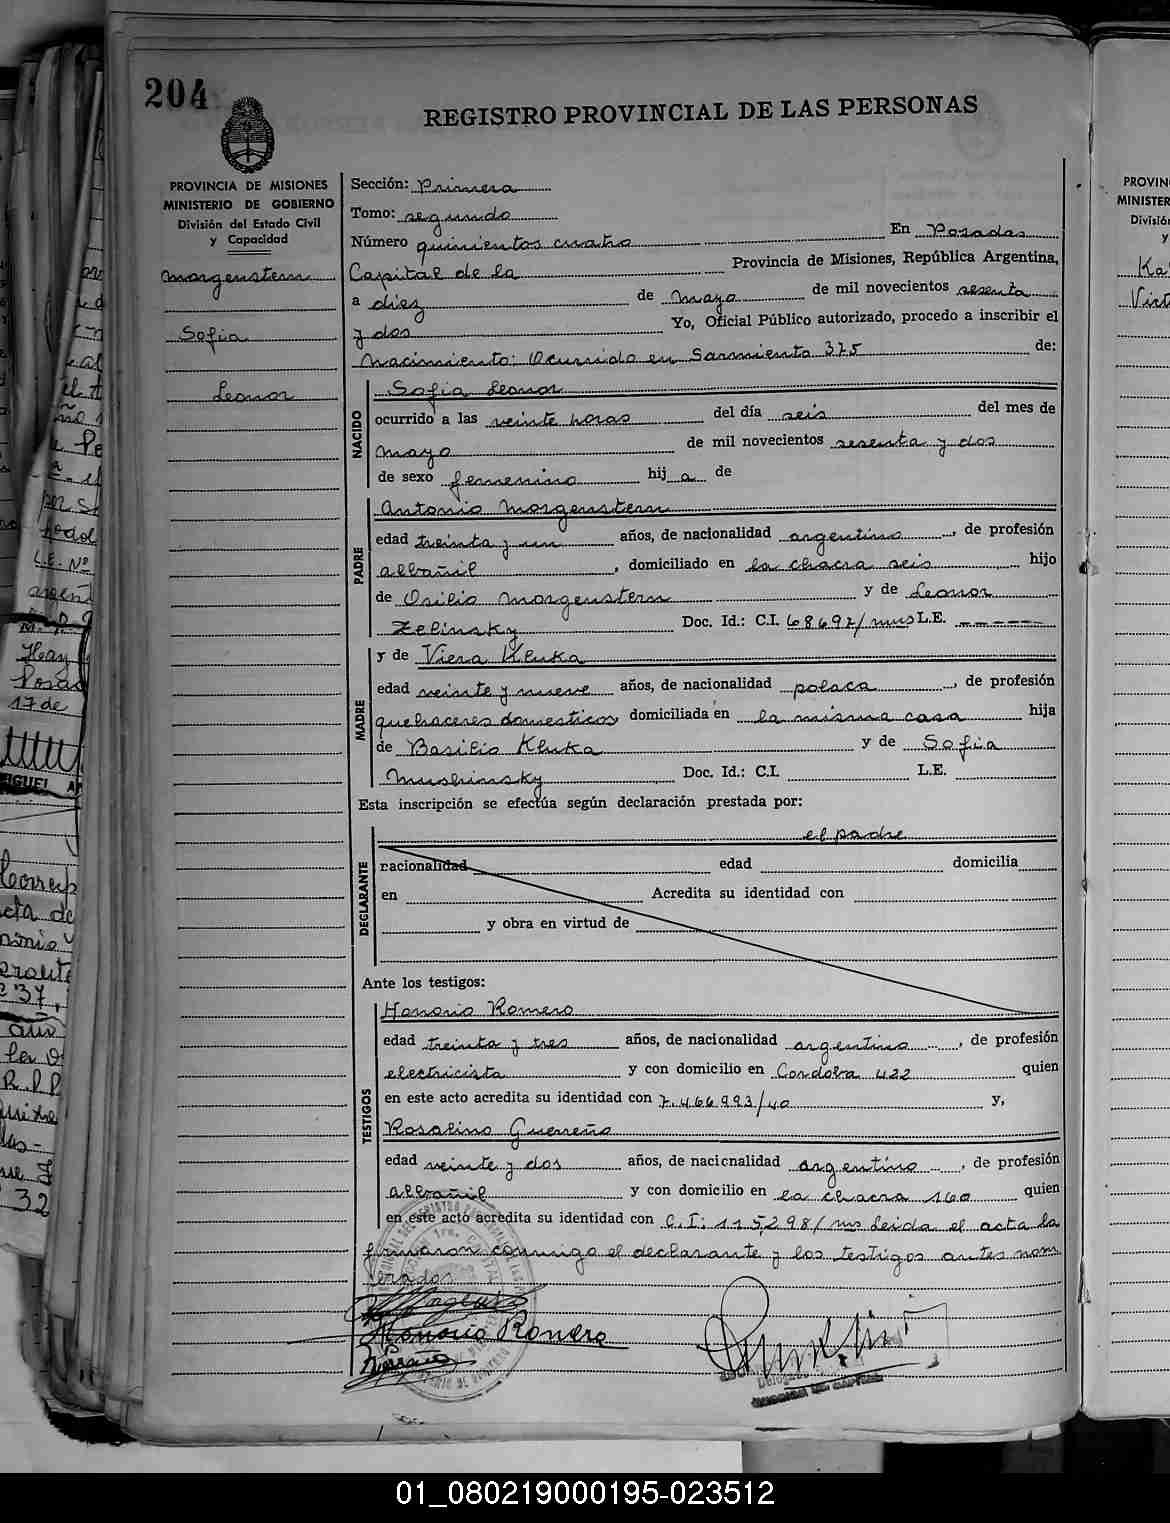 204
REGISTRO PROVINCIAL DE LAS PERSONAS
PROVINCIA DE MISIONES
MINISTERIO DE GOBIERNO
División del Estado Civil
y Capacidad
Morgenstern
Sofia
Leonor
Sección: Primera
Tomo: segundo
Número quinientos cuatro En Posadas
Capital de la Provincia de Misiones, República Argentina,
a diez de mayo de mil novecientos sesenta
y dos Yo, Oficial Público autorizado, procedo a inscribir el
Nacimiento: Ocurrido en Sarmiento 375 de:
NACIDO
Sofia Leonor
ocurrido a las veinte horas del día seis del mes de
mayo de mil novecientos sesenta y dos
de sexo femenino hij a de
PADRE
Antonio Morgenstern
edad treinta y un años, de nacionalidad argentino, de profesión
albañil, domiciliado en la chacra seis hijo
de Osilio Morgenstern y de Leonor
Zelinsky Doc. Id.: C.I. 68692/mns L.E. ------
MADRE
y de Viera Kluka
edad veinte y nueve años, de nacionalidad polaca, de profesión
quehaceres domesticos domiciliada en la misma casa hija
de Basilio Kluka y de Sofia
Mushinsky Doc. Id.: C.I. L.E.
Esta inscripción se efectúa según declaración prestada por:
DECLARANTE
el padre
nacionalidad edad domicilia
en Acredita su identidad con
y obra en virtud de
Ante los testigos:
TESTIGOS
Honorio Romero
edad treinta y tres años, de nacionalidad argentino, de profesión
electricista y con domicilio en Cordoba 422 quien
en este acto acredita su identidad con 7.466.993/40 y,
Rosalino Guerreño
edad veinte y dos años, de nacionalidad argentino, de profesión
albañil y con domicilio en la chacra 160 quien
en este acto acredita su identidad con C.I: 115,298/mns Leida el acta la
firmaron conmigo el declarante y los testigos antes nom
brados
Honorio Romero
01_080219000195-023512